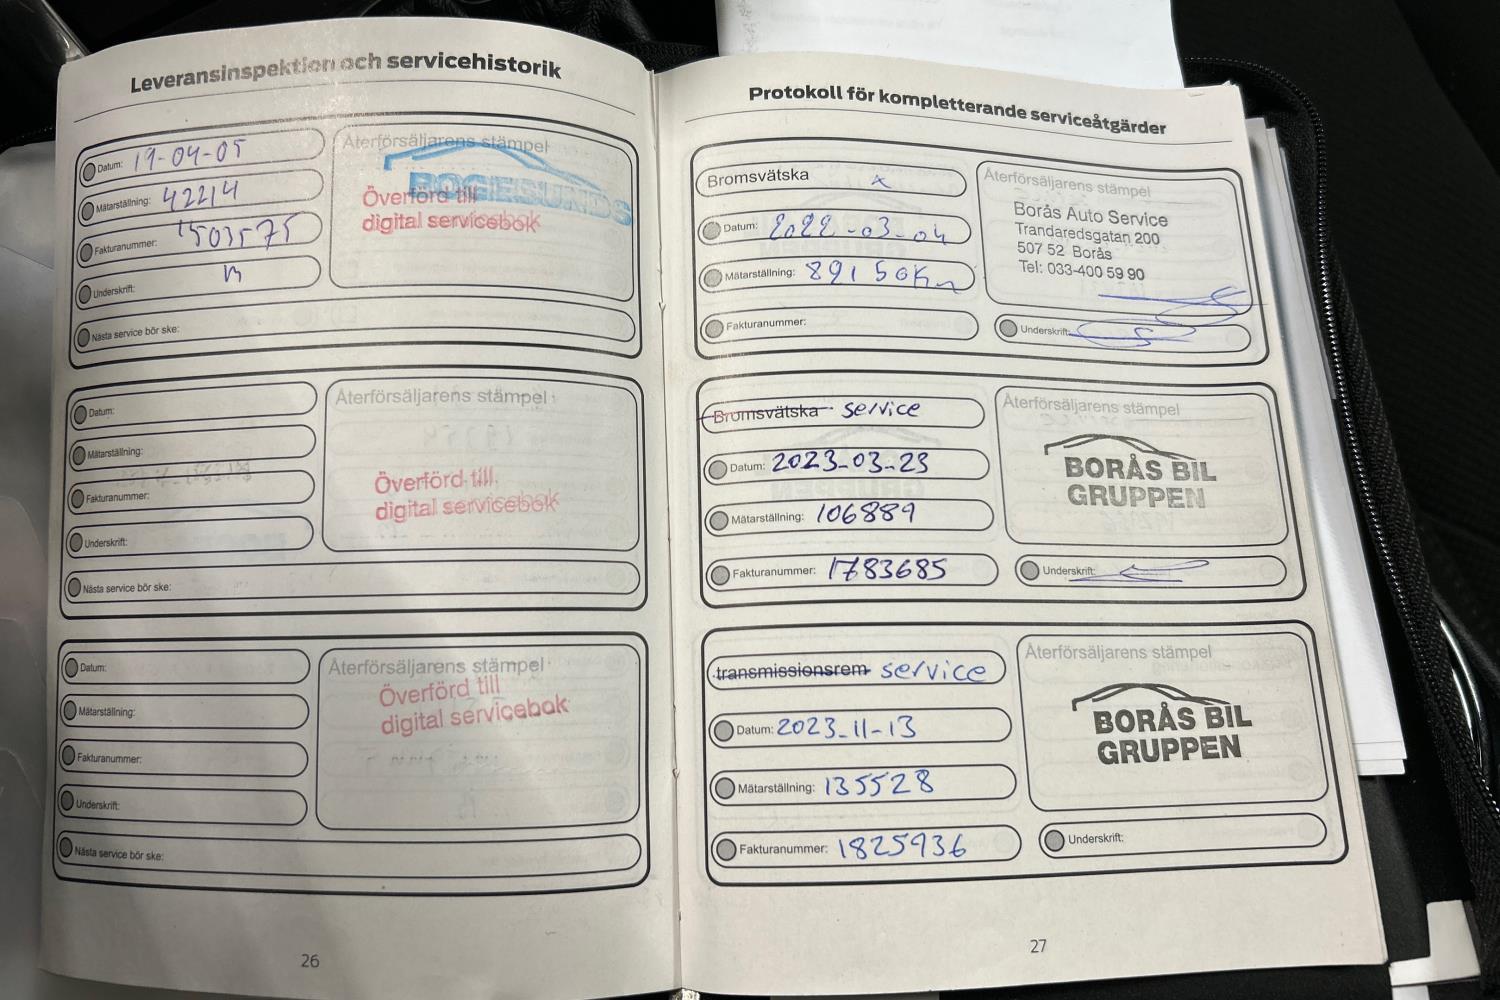 Leveransinspektion och servicehistorik
Datum: 19-04-05
Mätarställning: 42214
Fakturanummer: 1503575
Underskrift:
Nästa service bör ske:
Återförsäljarens stämpel
BOGESUNDS
Överförd till
digital servicebok
Datum:
Mätarställning:
Fakturanummer:
Underskrift:
Nästa service bör ske:
Återförsäljarens stämpel
Överförd till
digital servicebok
Datum:
Mätarställning:
Fakturanummer:
Underskrift:
Nästa service bör ske:
Återförsäljarens stämpel
Överförd till
digital servicebok
26
Protokoll för kompletterande serviceåtgärder
Bromsvätska x
Datum: 2022-03-04
Mätarställning: 89150Km
Fakturanummer:
Återförsäljarens stämpel
Borås Auto Service
Trandaredsgatan 200
507 52 Borås
Tel: 033-400 59 90
Underskrift:
Bromsvätska service
Datum: 2023-03-23
Mätarställning: 106889
Fakturanummer: 1783685
Återförsäljarens stämpel
BORÅS BIL
GRUPPEN
Underskrift:
transmissionsrem service
Datum: 2023-11-13
Mätarställning: 135528
Fakturanummer: 1825936
Återförsäljarens stämpel
BORÅS BIL
GRUPPEN
Underskrift:
27